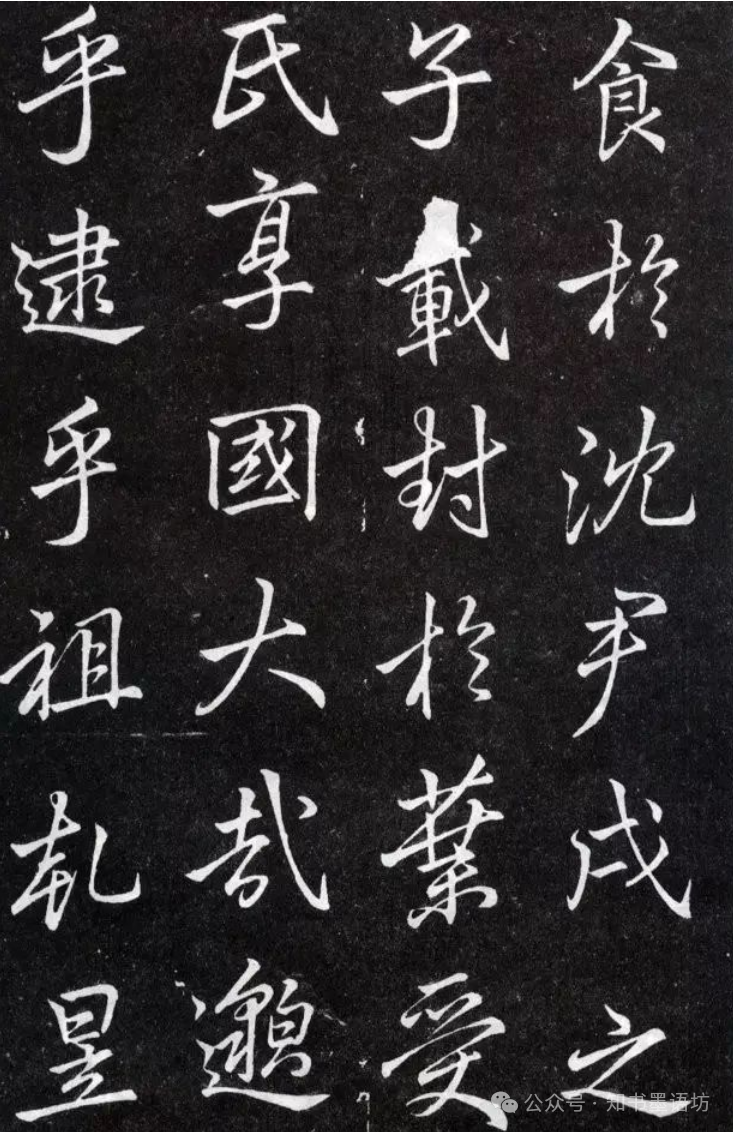 食於沈尹戌之
子載封於葉受
氏享國大哉邈
乎逮乎祖乹昱
公众号 · 知书墨语坊